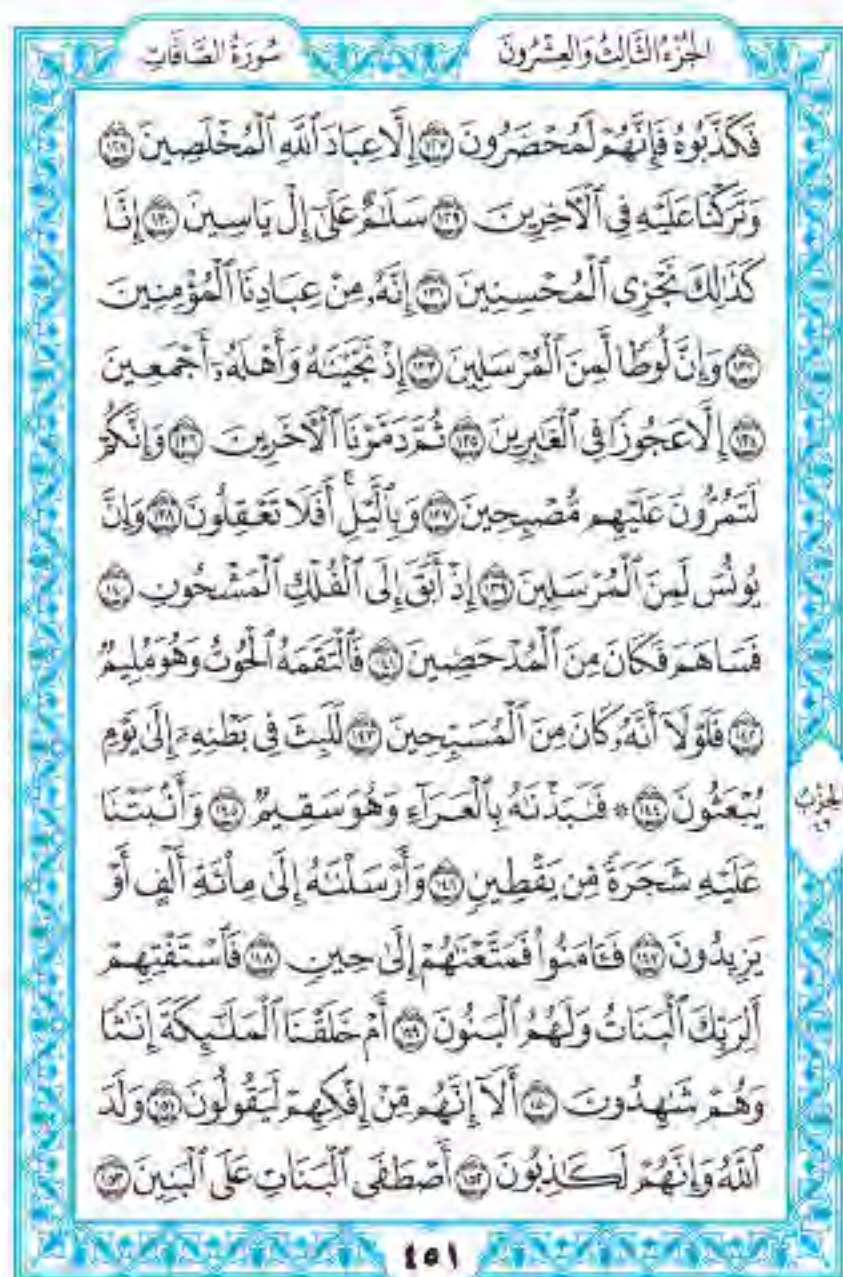 الجُزْءُ الثَّالِثُ وَالعِشْرُونَ
سُورَةُ الصَّافَّاتِ
فَكَذَّبُوهُ فَإِنَّهُمْ لَمُحْضَرُونَ ١٢٧ إِلَّا عِبَادَ ٱللَّهِ ٱلْمُخْلَصِينَ ١٢٨
وَتَرَكْنَا عَلَيْهِ فِى ٱلْـَٔاخِرِينَ ١٢٩ سَلَـٰمٌ عَلَىٰٓ إِلْ يَاسِينَ ١٣٠ إِنَّا
كَذَٰلِكَ نَجْزِى ٱلْمُحْسِنِينَ ١٣١ إِنَّهُۥ مِنْ عِبَادِنَا ٱلْمُؤْمِنِينَ
١٣٢ وَإِنَّ لُوطًا لَّمِنَ ٱلْمُرْسَلِينَ ١٣٣ إِذْ نَجَّيْنَـٰهُ وَأَهْلَهُۥٓ أَجْمَعِينَ
١٣٤ إِلَّا عَجُوزًا فِى ٱلْغَـٰبِرِينَ ١٣٥ ثُمَّ دَمَّرْنَا ٱلْـَٔاخَرِينَ ١٣٦ وَإِنَّكُمْ
لَتَمُرُّونَ عَلَيْهِم مُّصْبِحِينَ ١٣٧ وَبِٱلَّيْلِ ۗ أَفَلَا تَعْقِلُونَ ١٣٨ وَإِنَّ
يُونُسَ لَمِنَ ٱلْمُرْسَلِينَ ١٣٩ إِذْ أَبَقَ إِلَى ٱلْفُلْكِ ٱلْمَشْحُونِ ١٤٠
فَسَاهَمَ فَكَانَ مِنَ ٱلْمُدْحَضِينَ ١٤١ فَٱلْتَقَمَهُ ٱلْحُوتُ وَهُوَ مُلِيمٌ
١٤٢ فَلَوْلَآ أَنَّهُۥ كَانَ مِنَ ٱلْمُسَبِّحِينَ ١٤٣ لَلَبِثَ فِى بَطْنِهِۦٓ إِلَىٰ يَوْمِ
يُبْعَثُونَ ١٤٤ ۞ فَنَبَذْنَـٰهُ بِٱلْعَرَآءِ وَهُوَ سَقِيمٌ ١٤٥ وَأَنۢبَتْنَا
عَلَيْهِ شَجَرَةً مِّن يَقْطِينٍ ١٤٦ وَأَرْسَلْنَـٰهُ إِلَىٰ مِا۟ئَةِ أَلْفٍ أَوْ
يَزِيدُونَ ١٤٧ فَـَٔامَنُوا۟ فَمَتَّعْنَـٰهُمْ إِلَىٰ حِينٍ ١٤٨ فَٱسْتَفْتِهِمْ
أَلِرَبِّكَ ٱلْبَنَاتُ وَلَهُمُ ٱلْبَنُونَ ١٤٩ أَمْ خَلَقْنَا ٱلْمَلَـٰٓئِكَةَ إِنَـٰثًا
وَهُمْ شَـٰهِدُونَ ١٥٠ أَلَآ إِنَّهُم مِّنْ إِفْكِهِمْ لَيَقُولُونَ ١٥١ وَلَدَ
ٱللَّهُ وَإِنَّهُمْ لَكَـٰذِبُونَ ١٥٢ أَصْطَفَى ٱلْبَنَاتِ عَلَى ٱلْبَنِينَ ١٥٣
الحِزْبُ
٤٦
٤٥١